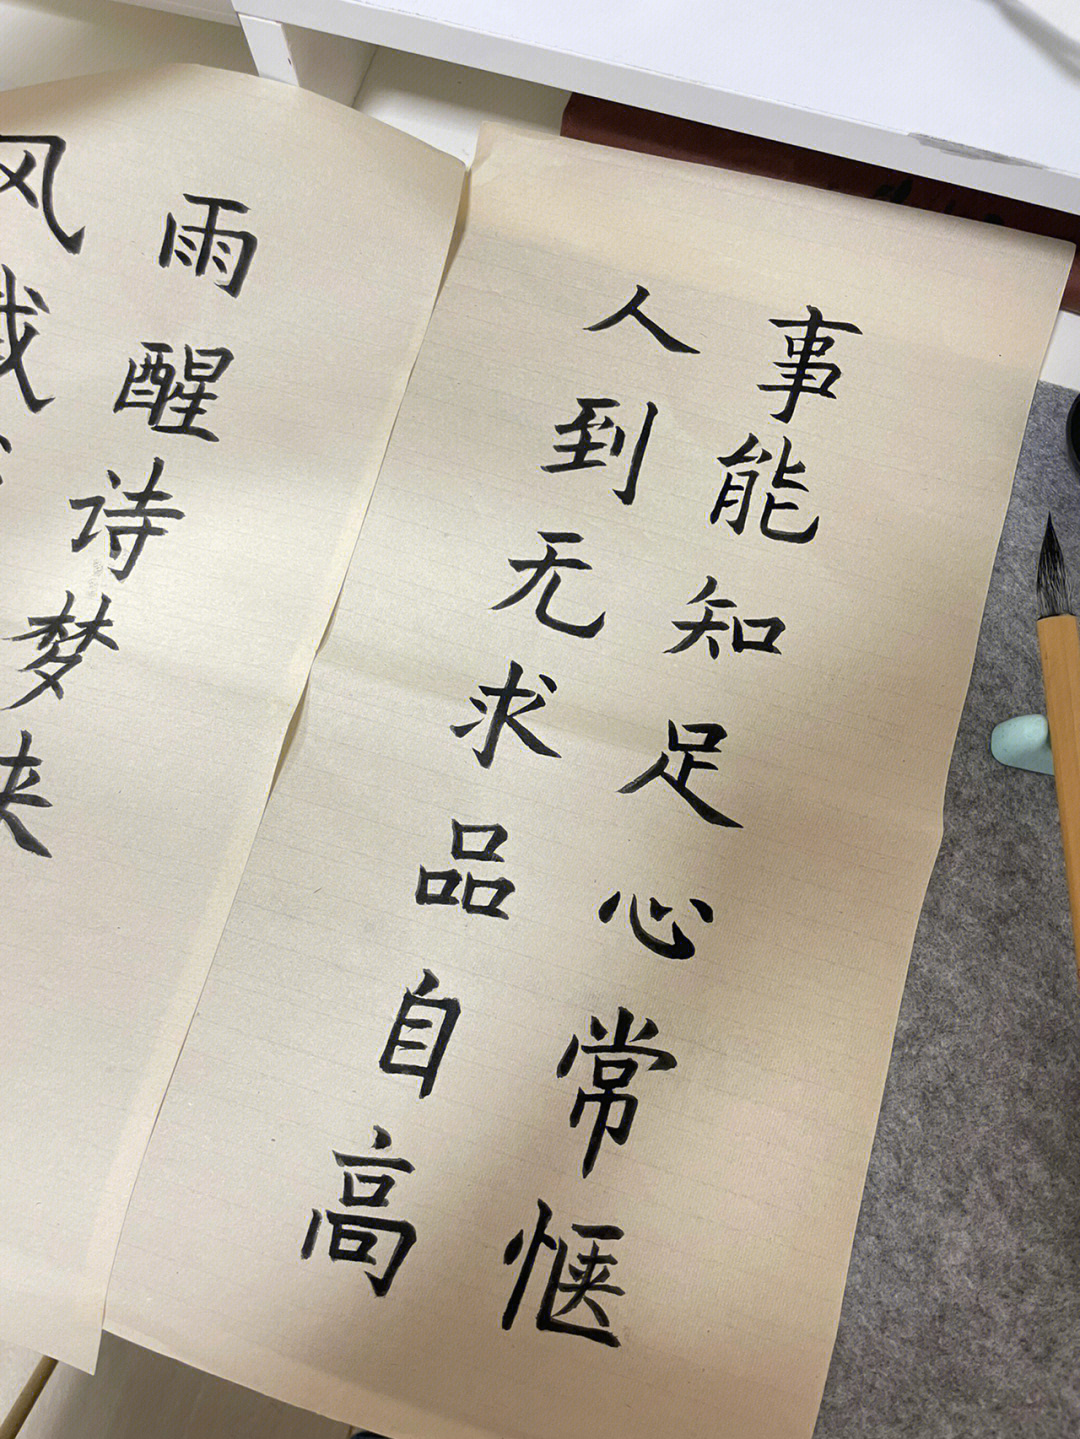 事能知足心常惬
人到无求品自高
雨醒诗梦来
风